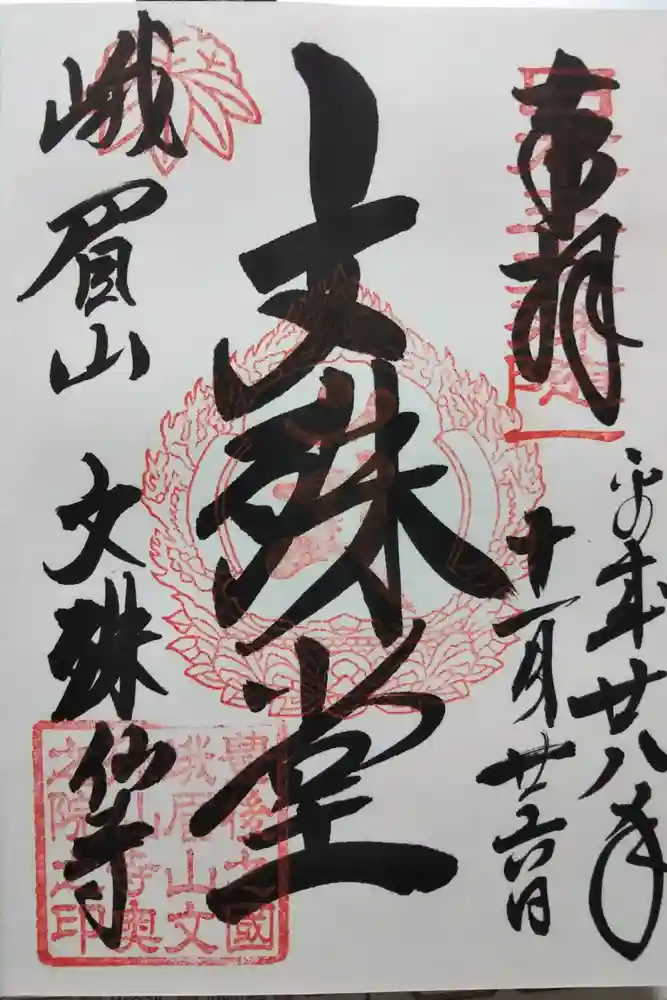 奉拝
平成廿八年
十一月廿六日
文殊堂
峨眉山 文殊仙寺
豊後之國
峨眉山文
殊仙寺奥
之院之印